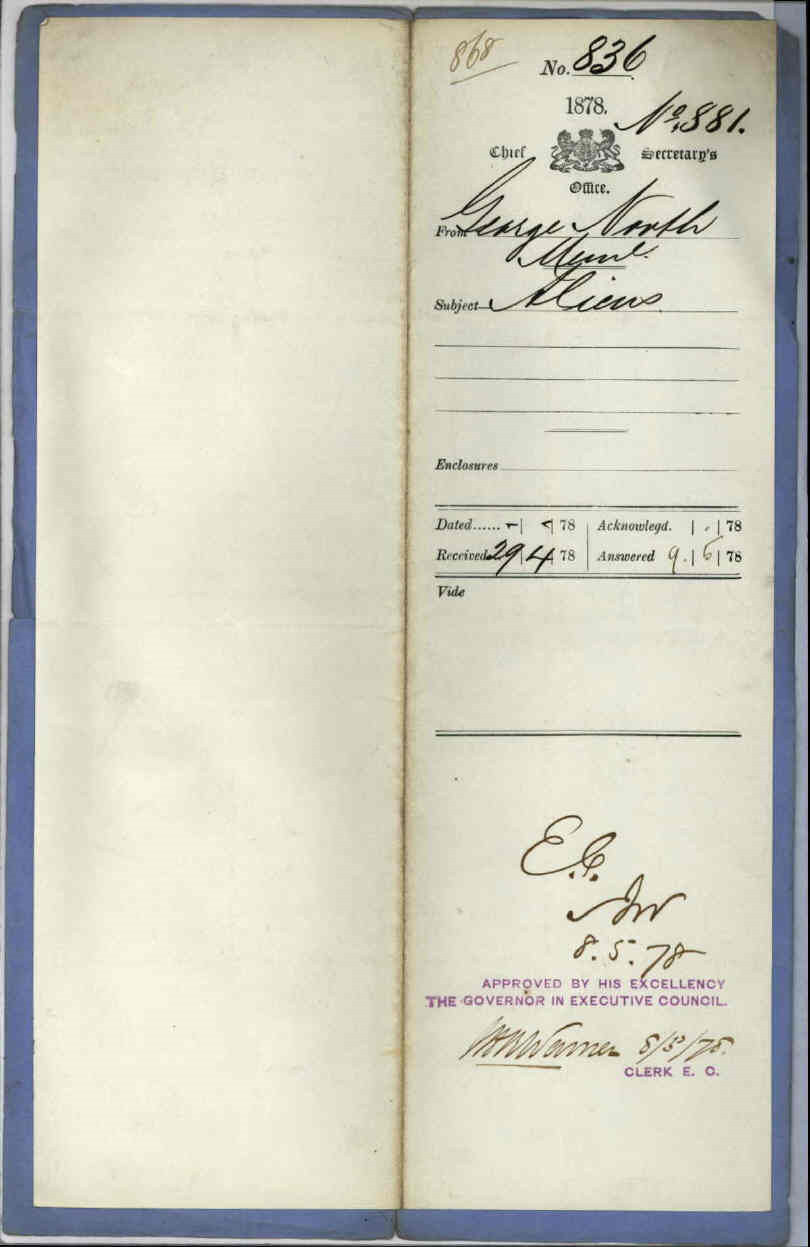 868
No. 836
1878.
No. 881.
Chief Secretary's
Office.
From George North
Meml.
Subject Aliens
Enclosures
Dated...... | | 78 Acknowlegd. | . | 78
Received 29 | 4 | 78 Answered 9. | 5 | 78
Vide
E.C.
8.5.78
APPROVED BY HIS EXCELLENCY
THE GOVERNOR IN EXECUTIVE COUNCIL.
Warner 8/5/78.
CLERK E. C.